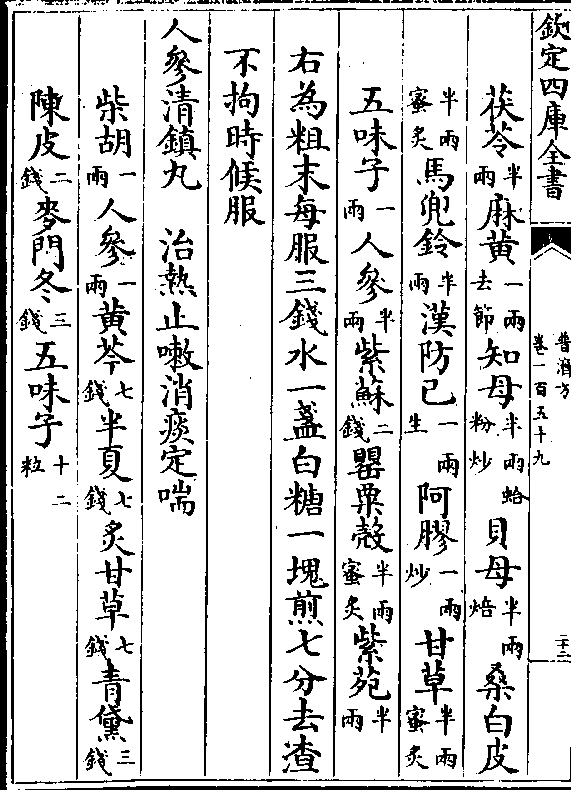 欽定四庫全書
普濟方
卷一百五十九
二十二
茯苓半兩麻黄一兩去節知母半兩蛤粉炒貝母半兩焙桑白皮
半兩蜜炙馬兜鈴半兩漢防已一兩生阿膠一兩炒甘草半兩蜜炙
五味子一兩人參半兩紫蘇二錢罌粟殻半兩蜜炙紫苑半兩
右為粗末每服三錢水一盞白糖一塊煎七分去渣
不拘時候服
人參清鎮丸 治熱止嗽消痰定喘
柴胡一兩人參一兩黄芩七錢半夏七錢炙甘草七錢青黛三錢
陳皮二錢麥門冬三錢五味子十二粒